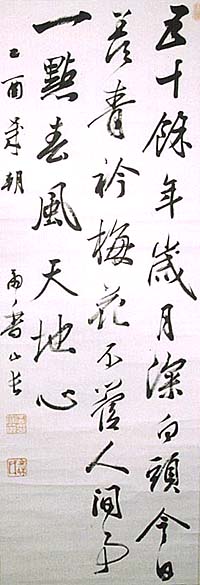 五十餘年歲月深白頭今日
羞青衿梅花不管人間事
一點春風天地心
酉歲朝
山長